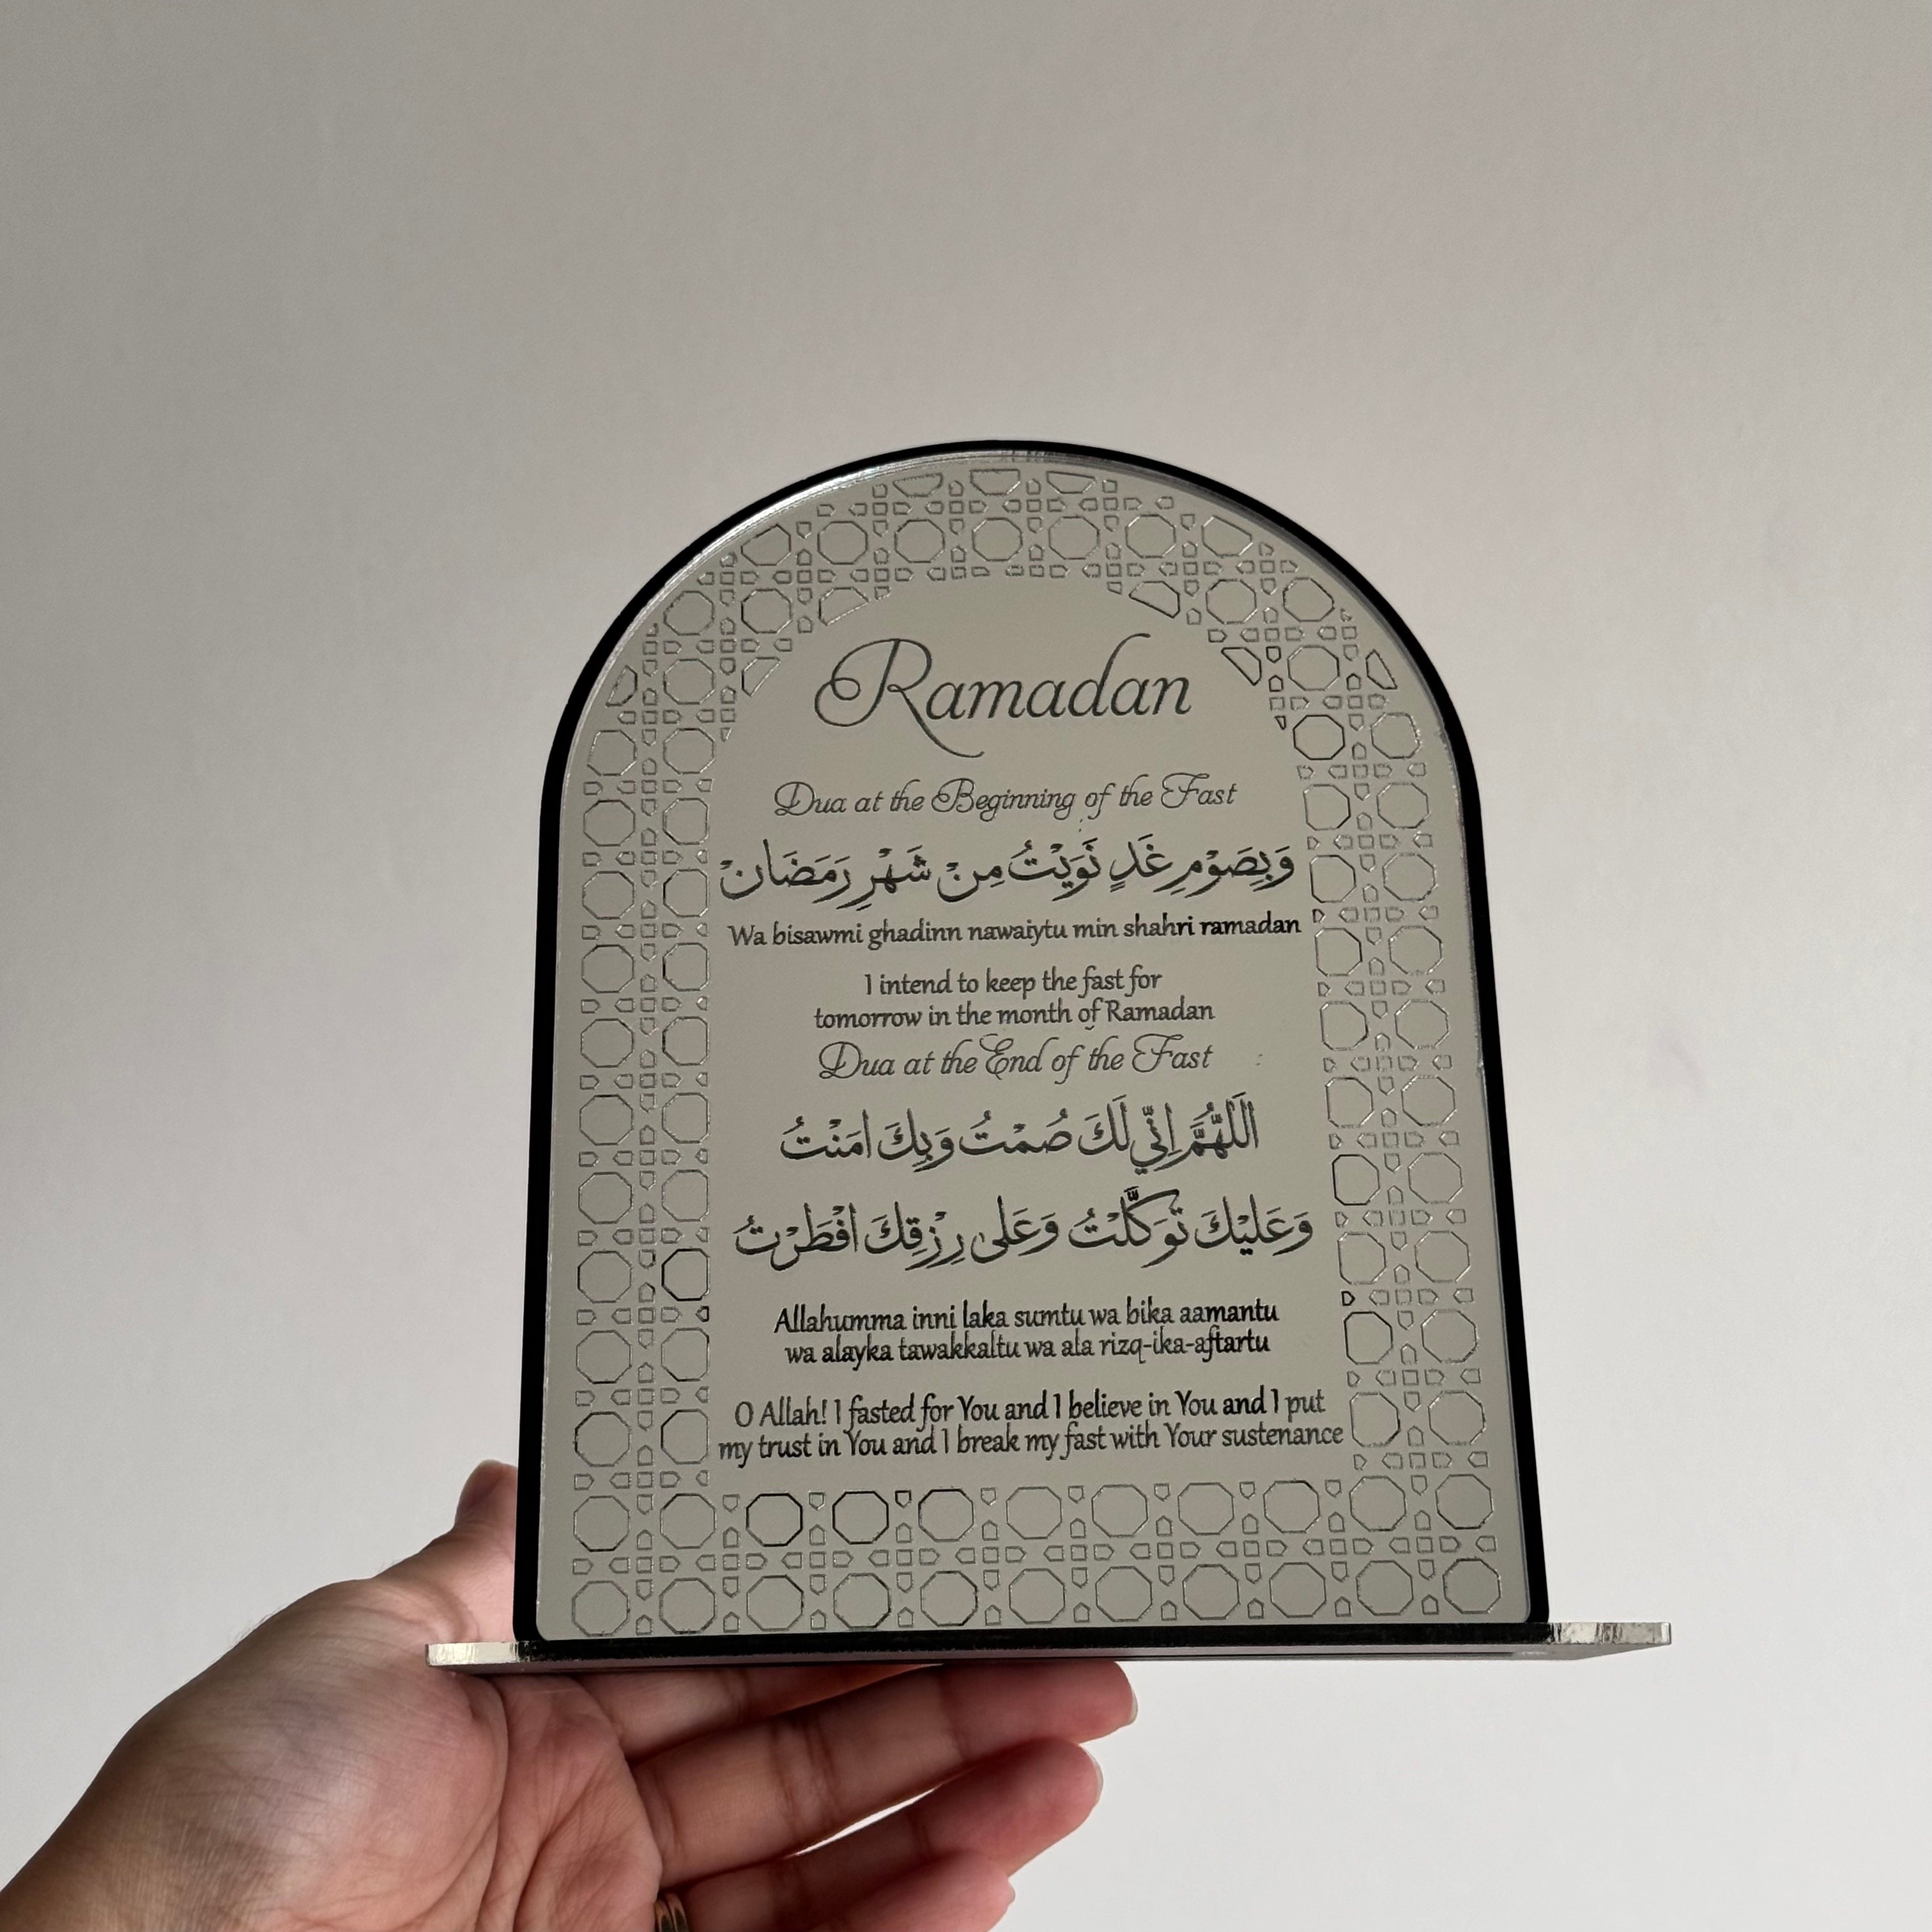 Ramadan
Dua at the Beginning of the Fast
وَبِصَوْمِ غَدٍ نَّوَيْتُ مِنْ شَهْرِ رَمَضَانْ
Wa bisawmi ghadinn nawaiytu min shahri ramadan
I intend to keep the fast for
tomorrow in the month of Ramadan
Dua at the End of the Fast
اَللّٰهُمَّ اِنِّي لَكَ صُمْتُ وَبِكَ اٰمَنْتُ
وَعَلَيْكَ تَوَكَّلْتُ وَعَلٰى رِزْقِكَ اَفْطَرْتُ
Allahumma inni laka sumtu wa bika aamantu
wa alayka tawakkaltu wa ala rizq-ika-aftartu
O Allah! I fasted for You and I believe in You and I put
my trust in You and I break my fast with Your sustenance